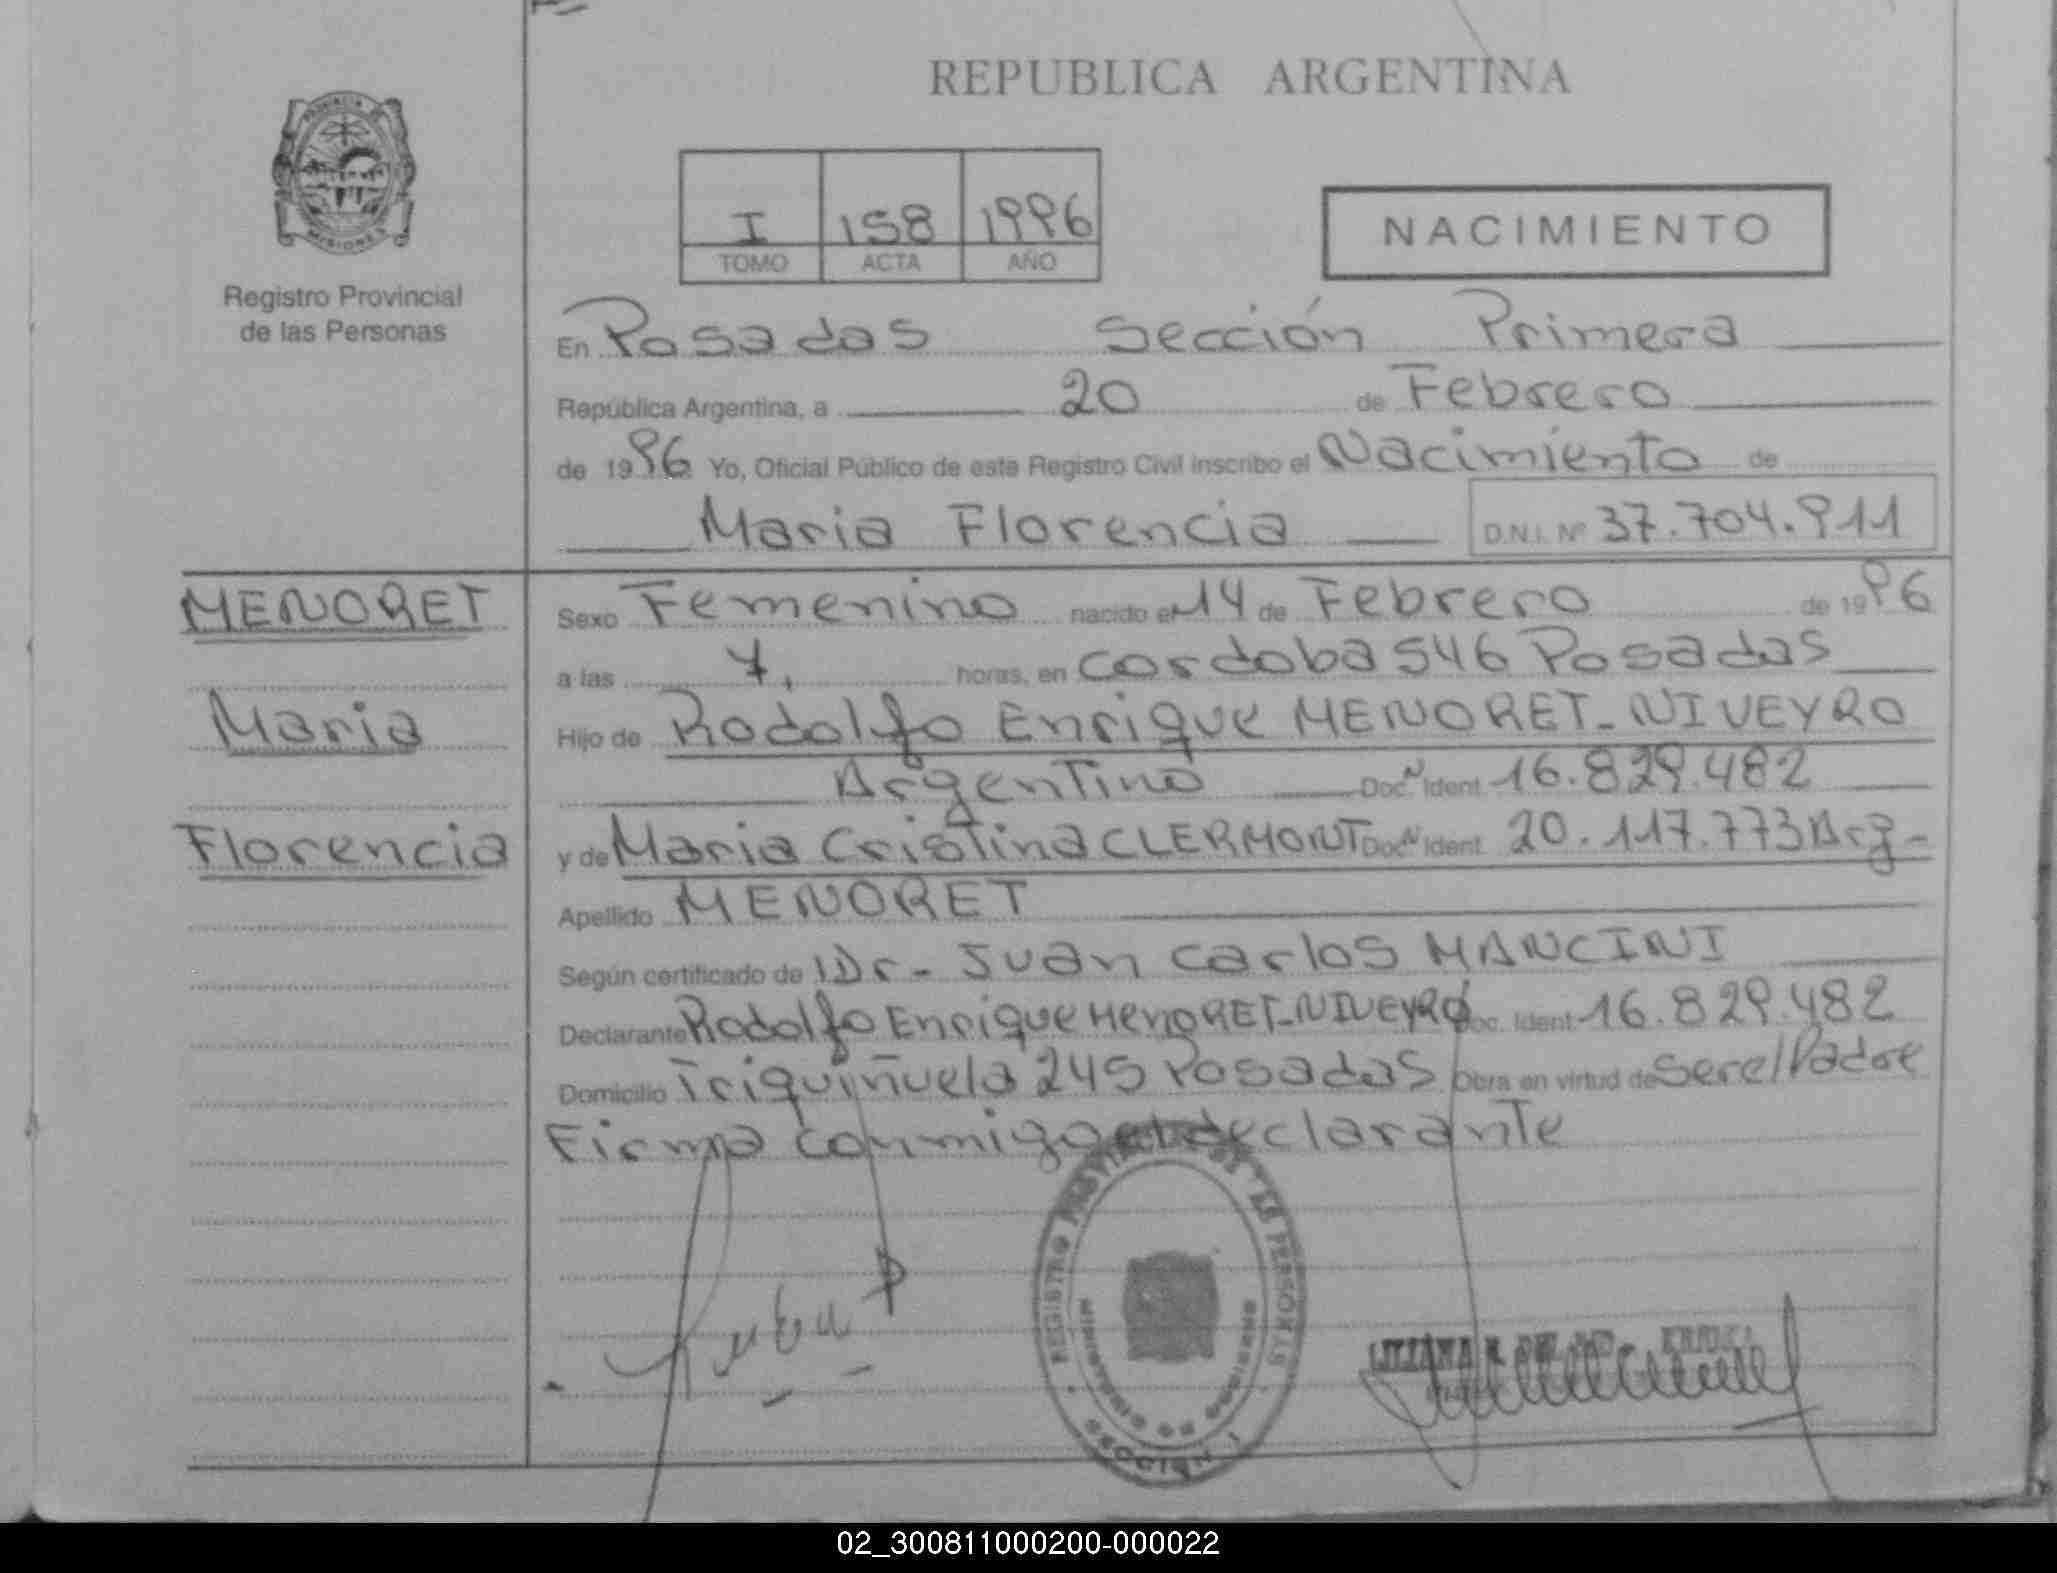 REPUBLICA ARGENTINA
PROVINCIA
MISIONES
Registro Provincial
de las Personas
I 158 1996
TOMO ACTA AÑO
NACIMIENTO
En Posadas Sección Primera
República Argentina, a 20 de Febrero
de 1996 Yo, Oficial Público de este Registro Civil inscribo el Nacimiento de
Maria Florencia D.N.I. Nº 37.704.911
MENORET
Maria
Florencia
Sexo Femenino nacido el 14 de Febrero de 1996
a las 7. horas, en Cordoba 546 Posadas
Hijo de Rodolfo Enrique MENORET-NIVEYRO
Argentino Doc. Ident. 16.829.482
y de Maria Cristina CLERMONT Doc. Ident. 20.117.773 Arg-
Apellido MENORET
Según certificado de Dr- Juan Carlos MANCINI
Declarante Rodolfo Enrique MenORET-NIVEYRO Doc. Ident. 16.829.482
Domicilio Triquiñuela 245 Posadas Obra en virtud de ser el Padre
Firma conmigo el declarante
REGISTRO PROVINCIAL DE LAS PERSONAS
MINISTERIO DE GOBIERNO
SECCION 1
LILIANA
02_300811000200-000022